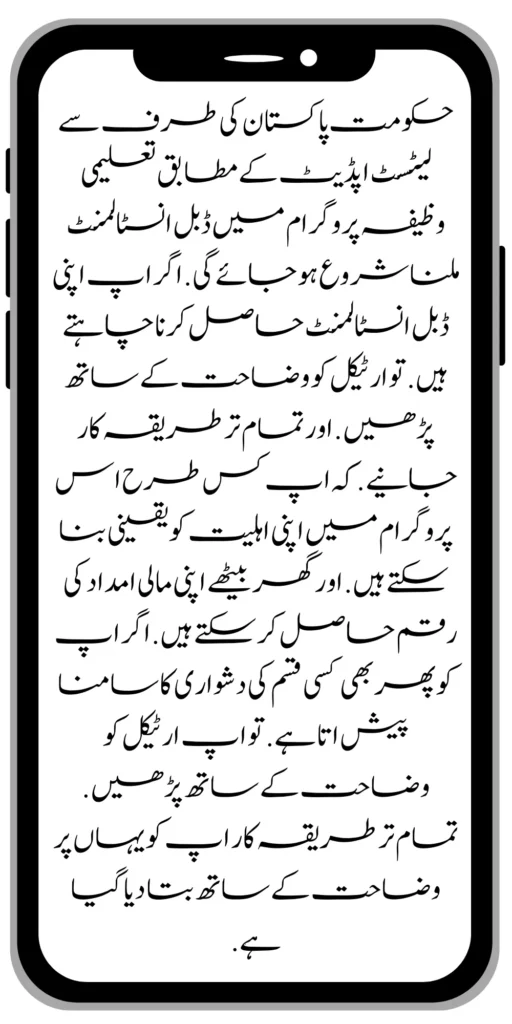 حکومت پاکستان کی طرف سے
لیٹسٹ اپڈیٹ کے مطابق تعلیمی
وظیفہ پروگرام میں ڈبل انسٹالمنٹ
ملنا شروع ہو جائے گی. اگر اپ اپنی
ڈبل انسٹالمنٹ حاصل کرنا چاہتے
ہیں. تو ارٹیکل کو وضاحت کے ساتھ
پڑھیں. اور تمام تر طریقہ کار
جانیے. کہ اپ کس طرح اس
پروگرام میں اپنی اہلیت کو یقینی بنا
سکتے ہیں. اور گھر بیٹھے اپنی مالی امداد کی
رقم حاصل کر سکتے ہیں. اگر اپ
کو پھر بھی کسی قسم کی دشواری کا سامنا
پیش اتا ہے. تو اپ ارٹیکل کو
وضاحت کے ساتھ پڑھیں.
تمام تر طریقہ کار اپ کو یہاں پر
وضاحت کے ساتھ بتا دیا گیا
ہے.